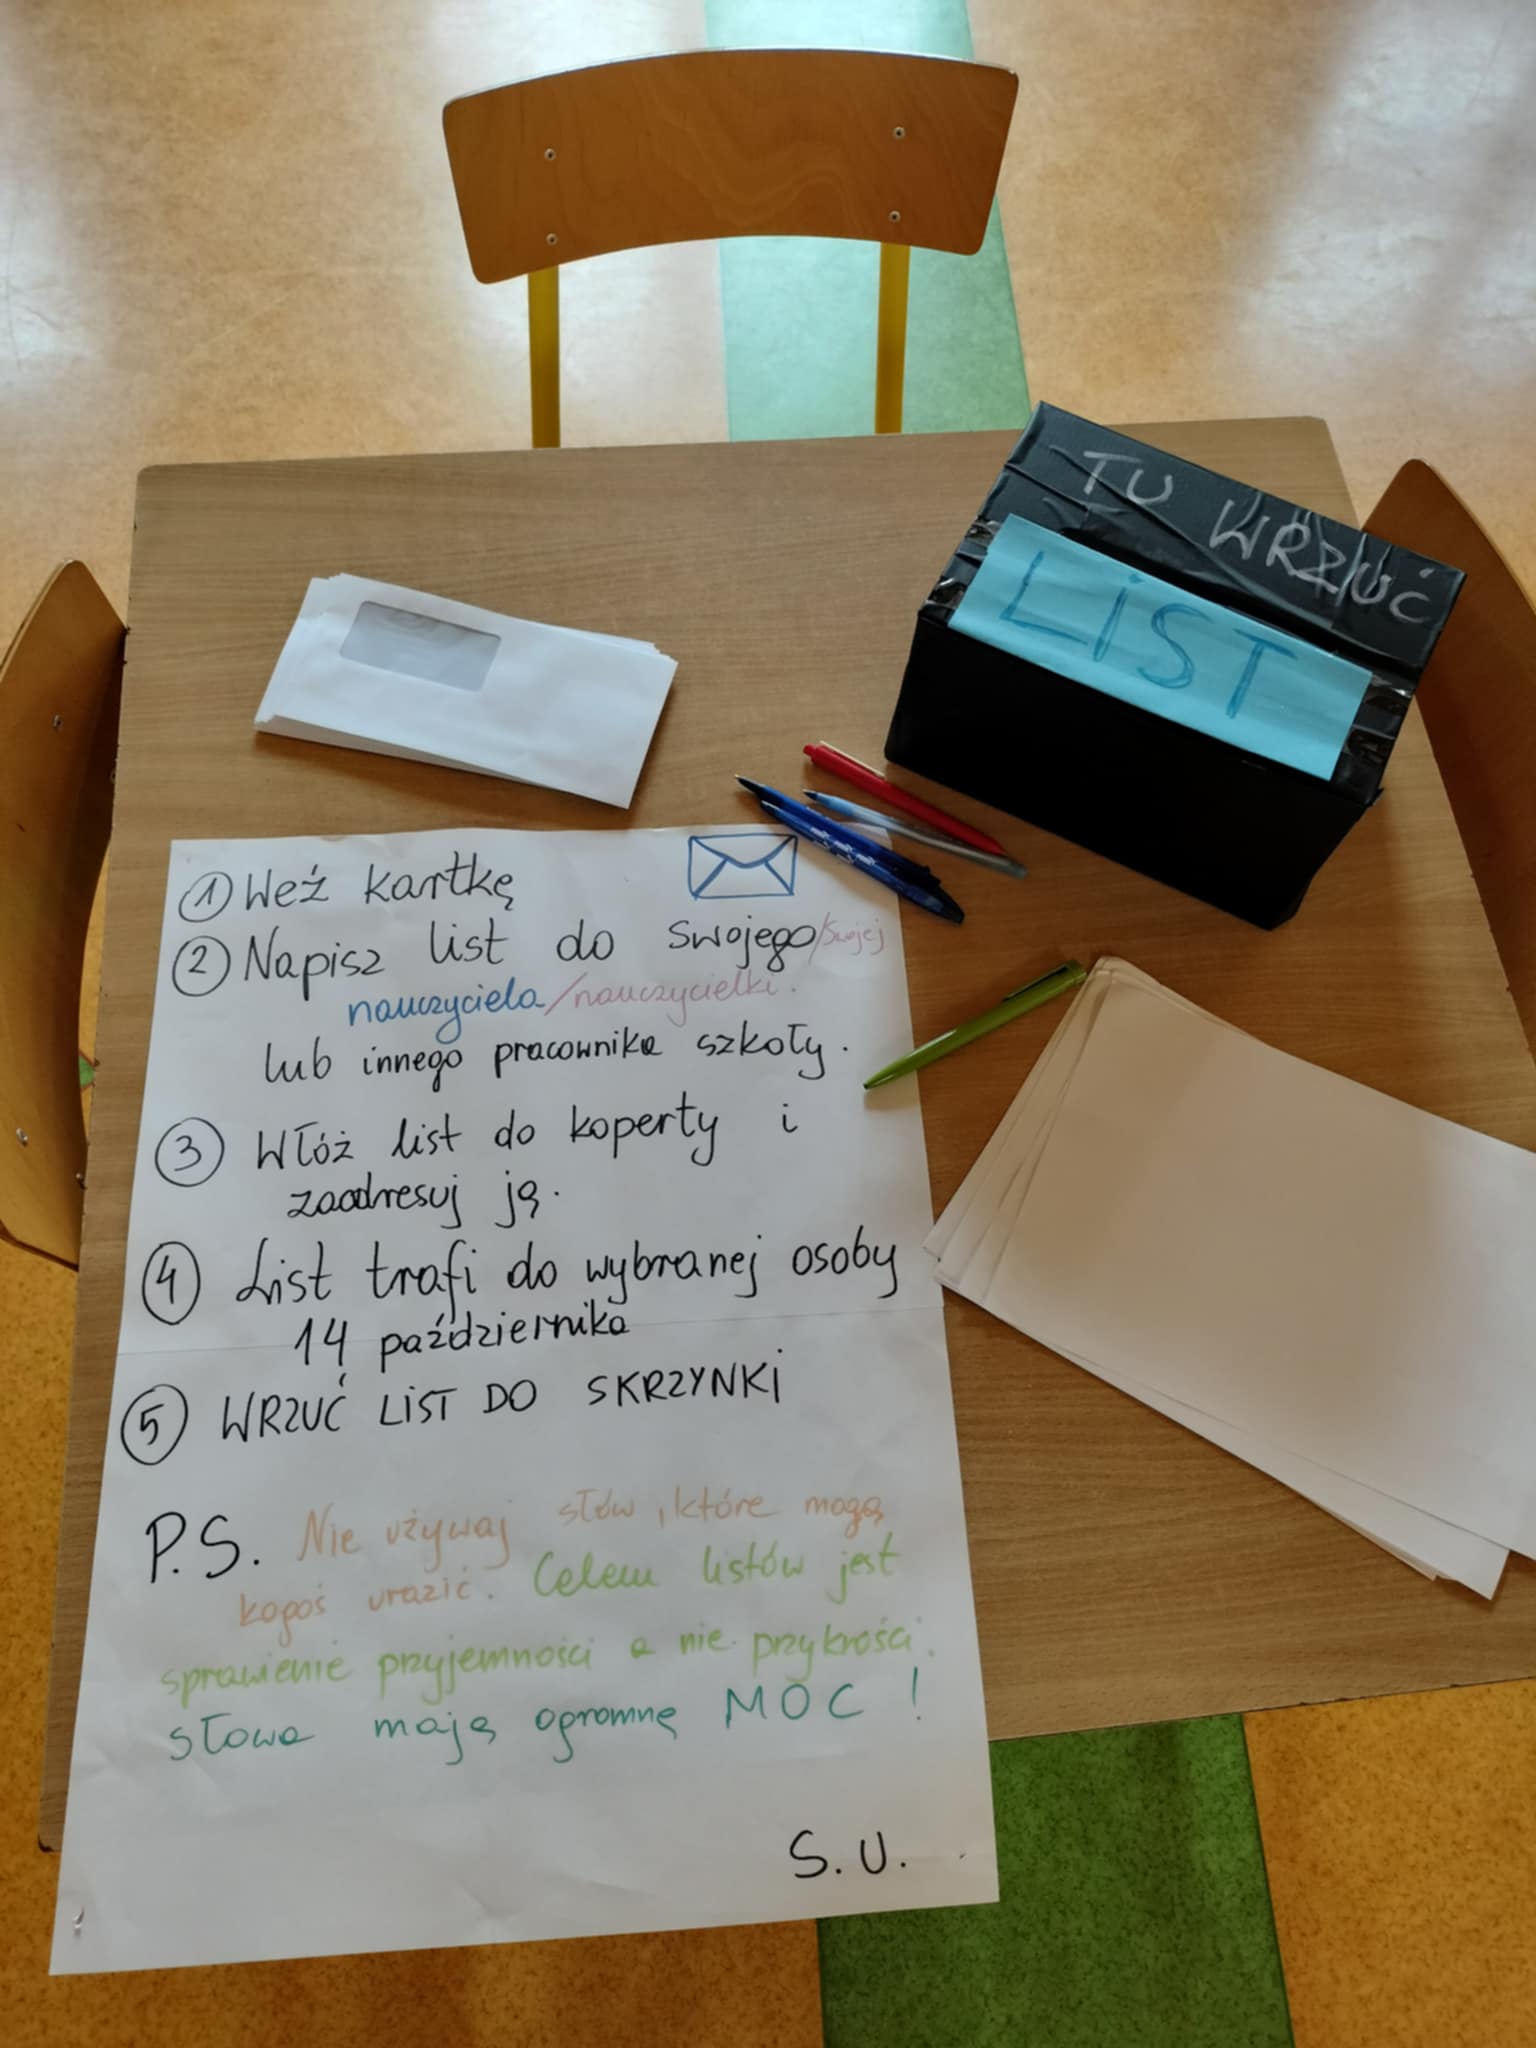 TU WRZUĆ
LIST
1 Weź kartkę
2 Napisz list do swojego/swojej
nauczyciela/nauczycielki.
lub innego pracownika szkoły.
3 Włóż list do koperty i
zaadresuj ją.
4 List trafi do wybranej osoby
14 października
5 WRZUĆ LIST DO SKRZYNKI
P.S. Nie używaj słów, które mogą
kogoś urazić. Celem listów jest
sprawienie przyjemności a nie przykrości.
słowa mają ogromną MOC !
S.U.